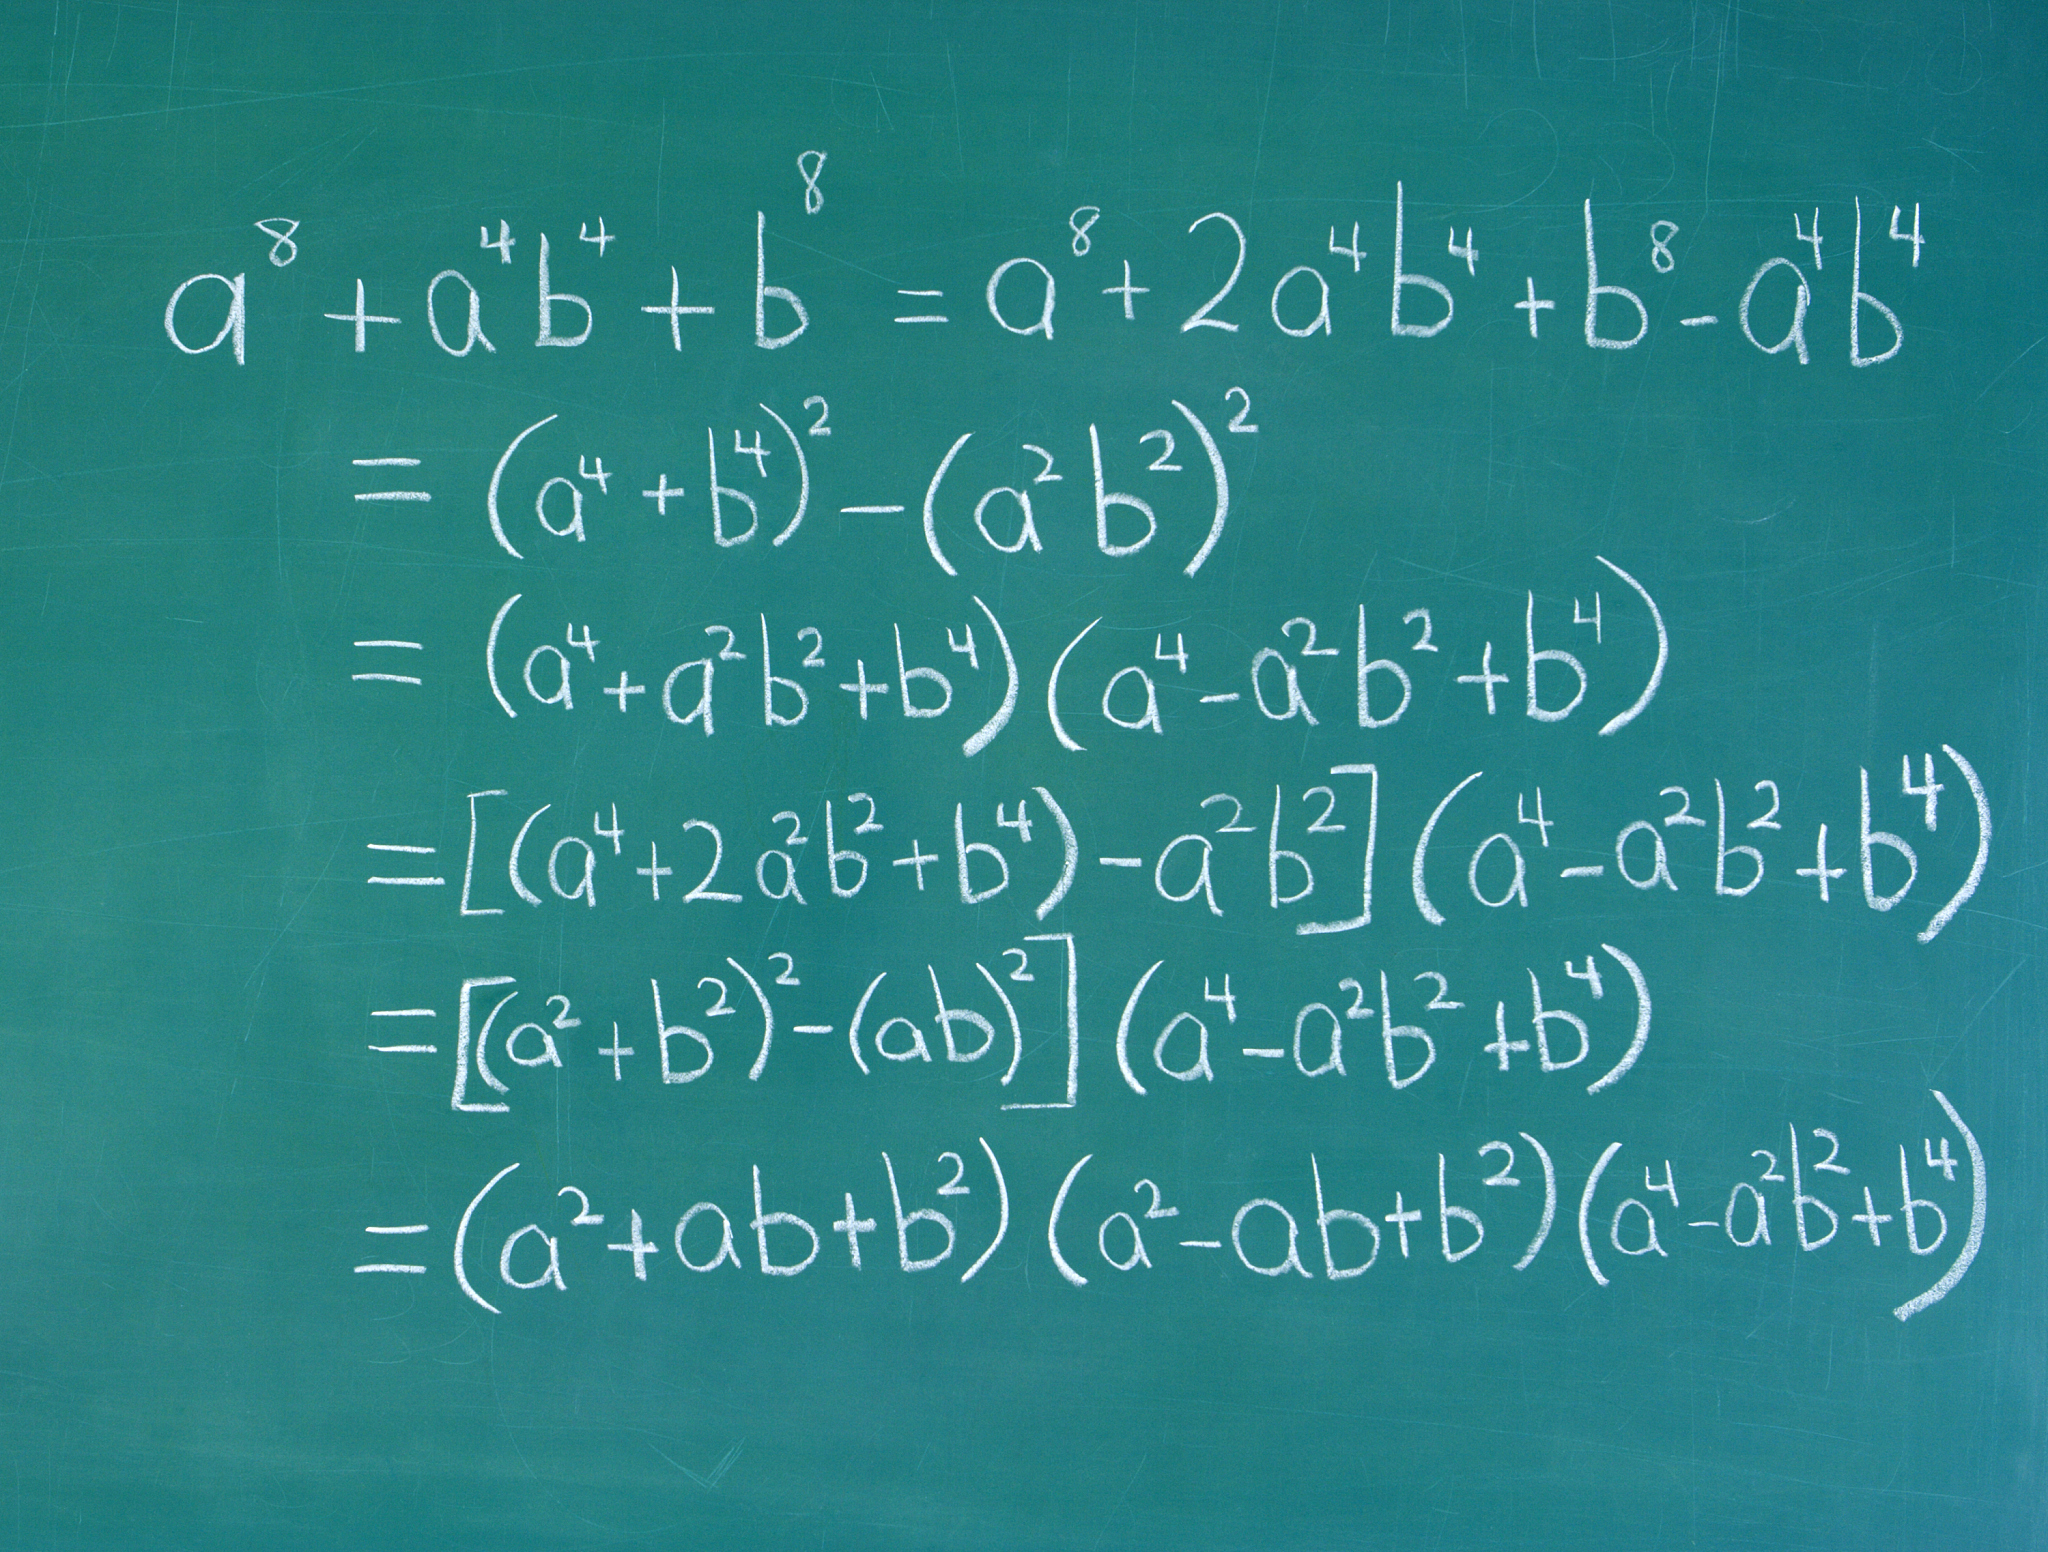 a⁸ + a⁴b⁴ + b⁸ = a⁸ + 2a⁴b⁴ + b⁸ - a⁴b⁴
= (a⁴ + b⁴)² - (a²b²)²
= (a⁴ + a²b² + b⁴)(a⁴ - a²b² + b⁴)
= [(a⁴ + 2a²b² + b⁴) - a²b²](a⁴ - a²b² + b⁴)
= [(a² + b²)² - (ab)²](a⁴ - a²b² + b⁴)
= (a² + ab + b²)(a² - ab + b²)(a⁴ - a²b² + b⁴)